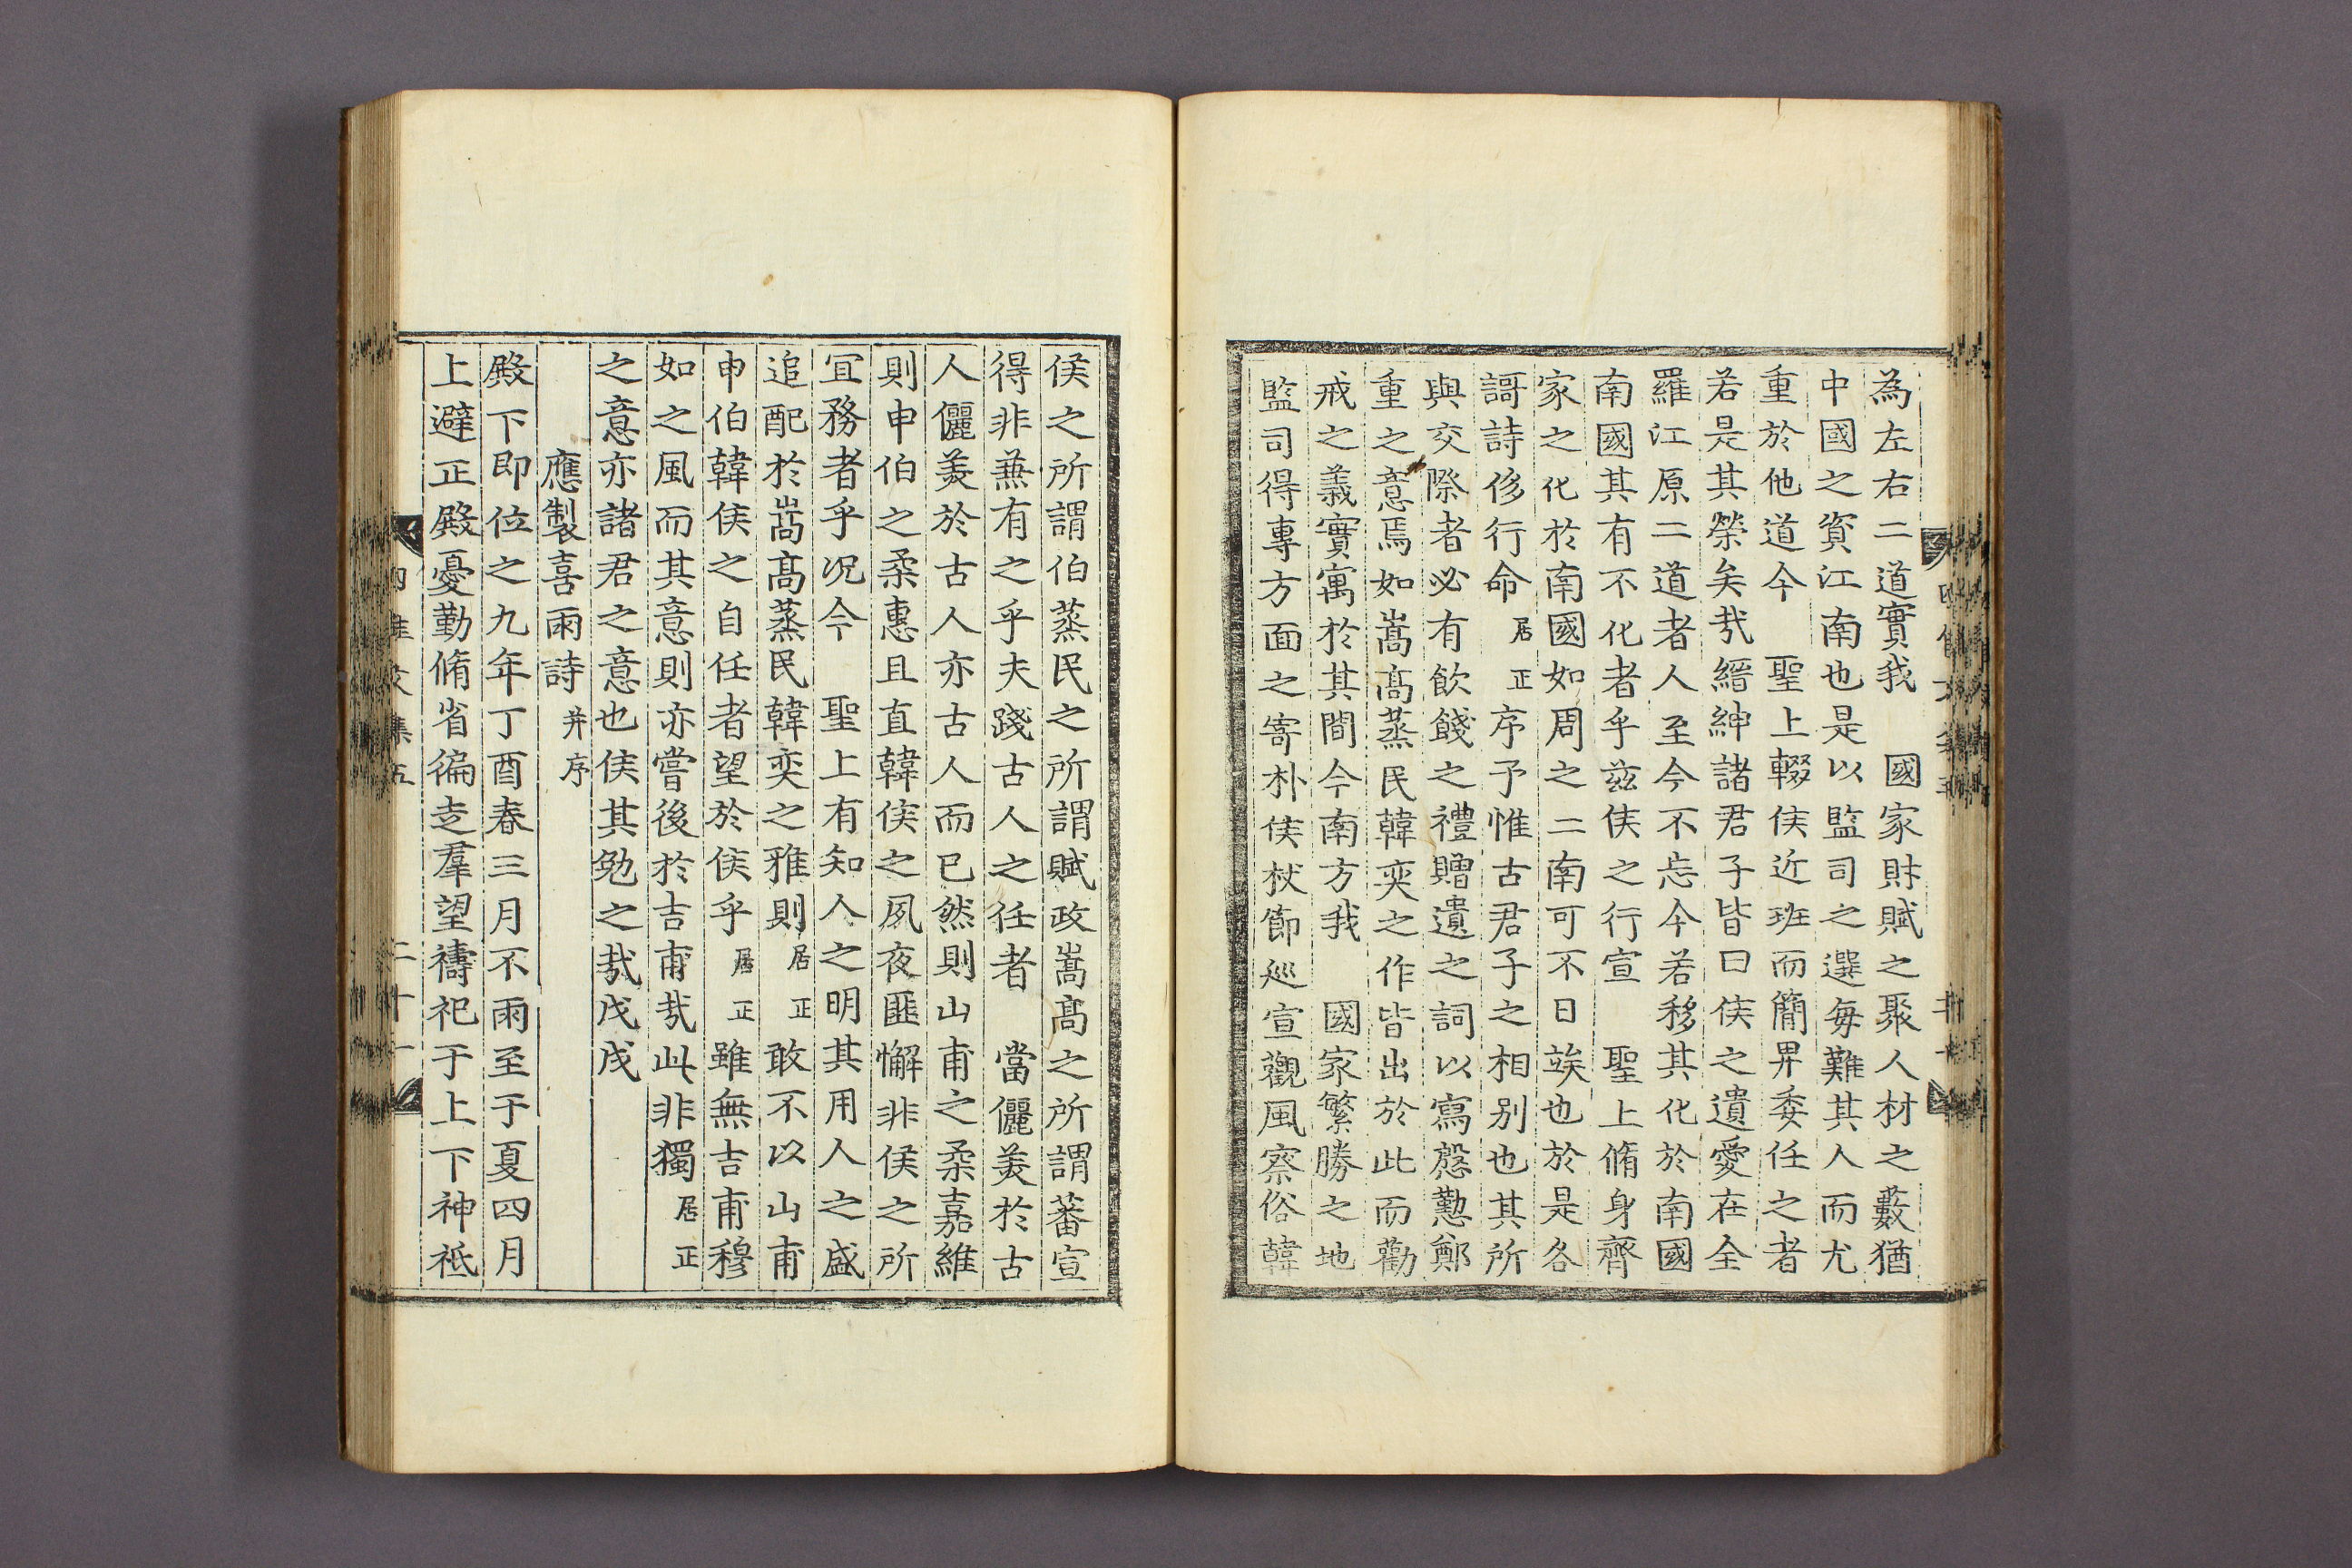 為左右二道實我 國家財賦之聚人材之藪猶
中國之資江南也是以監司之選每難其人而尤
重於他道今 聖上輟侯近班而簡畀委任之者
若是其榮矣㢤縉紳諸君子皆曰侯之遺愛在全
羅江原二道者人至今不忘今若移其化於南國
南國其有不化者乎茲侯之行宣 聖上脩身齊
家之化於南國如周之二南可不日竢也於是各
謌詩侈行命居正序予惟古君子之相别也其所
與交際者必有飲餞之禮贈遺之詞以寫慇懃鄭
重之意焉如嵩髙蒸民韓奕之作皆出於此而勸
戒之義實寓於其間今南方我 國家繁勝之地
監司得專方面之寄朴侯杖節巡宣觀風察俗韓
侯之所謂伯蒸民之所謂賦政嵩髙之所謂蕃宣
得非蕪有之乎夫踐古人之任者 當儷羙於古
人儷羙於古人亦古人而已然則山甫之柔嘉維
則申伯之柔惠且直韓侯之夙夜匪懈非侯之所
冝務者乎况今 聖上有知人之明其用人之盛
追配於嵩髙蒸民韓奕之雅則居正敢不以山甫
申伯韓侯之自任者望於侯乎居正雖無吉甫穆
如之風而其意則亦嘗後於吉甫㢤此非獨居正
之意亦諸君之意也侯其勉之㢤戊戌
應製喜雨詩并序
殿下即位之九年丁酉春三月不雨至于夏四月
上避正殿憂勤脩省徧走羣望禱祀于上下神祗
文集五
二十一